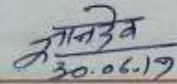 ज्ञानदेव
30.06.19